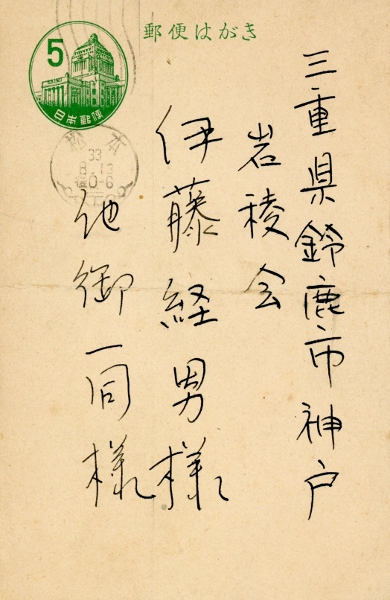 郵便はがき
5
日本郵便
松本
33
三重県鈴鹿市神戸
岩稜会
伊藤経男様
他御一同様